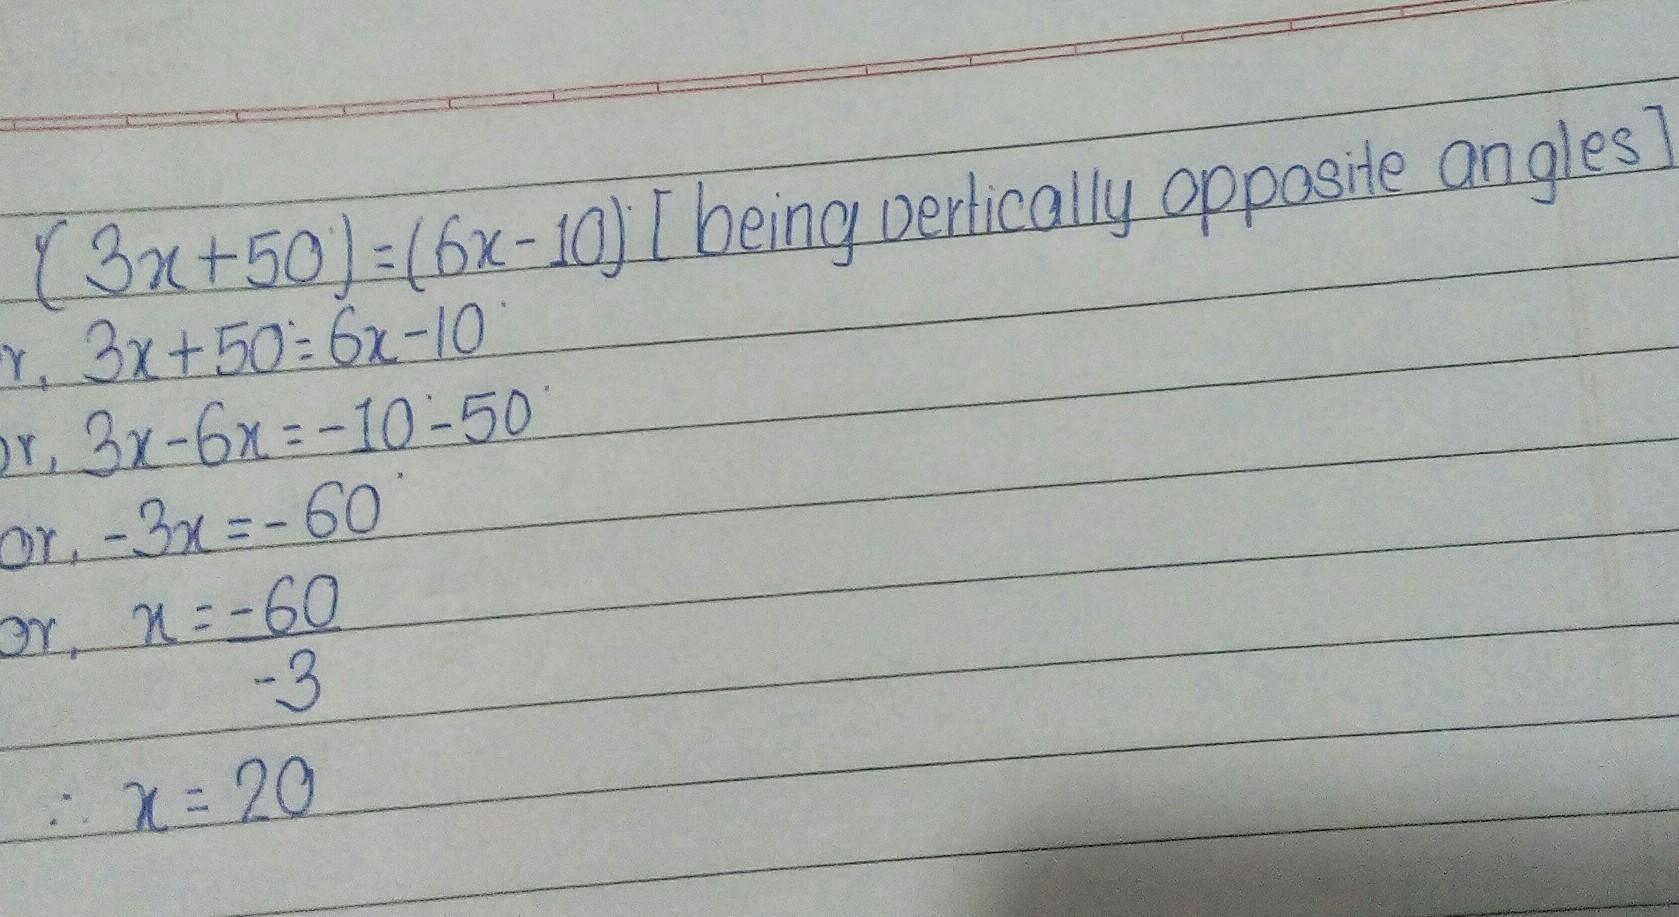 (3x+50°)=(6x-10)° [being vertically opposite angles]
r, 3x+50°=6x-10°
or, 3x-6x=-10°-50°
or, -3x=-60°
or, x=-60
-3
∴ x=20